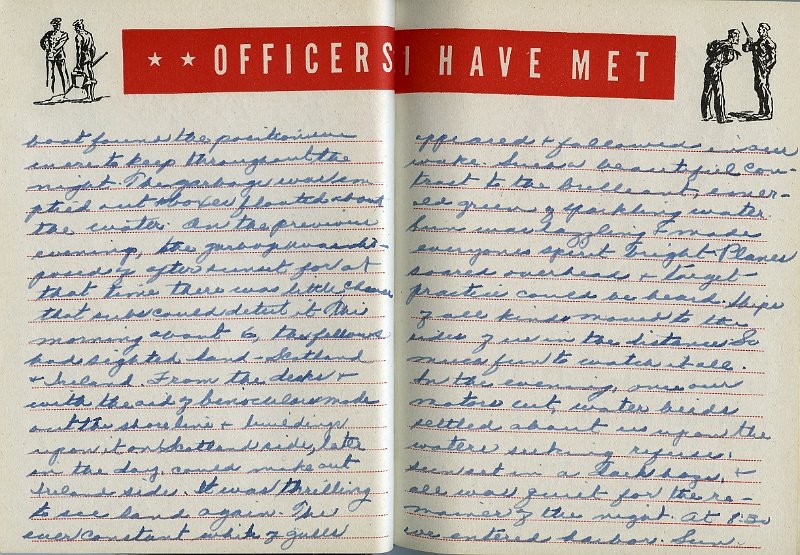 ★ ★ OFFICERS I HAVE MET
boat found the position we
were to keep throughout the
night. The garbage was em-
ptied out & boxes floated about
the water. On the previous
evening, the garbage was dis-
posed of after sunset for at
that time there was little chance
that subs could detect it. This
morning about 6, the fellows
had sighted land - Scotland
& Ireland. From the decks &
with the aid of binoculars made
out the shoreline & buildings
upon it on Scotland side, later
in the day could make out
Ireland side. It was thrilling
to see land again. The
ever constant white of gulls
appeared & followed in our
wake. Such a beautiful con-
trast to the brilliant, emer-
ald green of sparkling water.
Sun was dazzling & made
everyones spirit bright. Planes
soared overhead & target
practice could be heard. Ships
of all kinds moved to the
sides of us in the distance. So
much fun to watch it all.
In the evening, once our
motors cut, water birds
settled about us upon the
waters seeking refuse;
sun set in a haze, &
all was quiet for the re-
mainer of the night. At 8:30
we entered harbor. Sun.